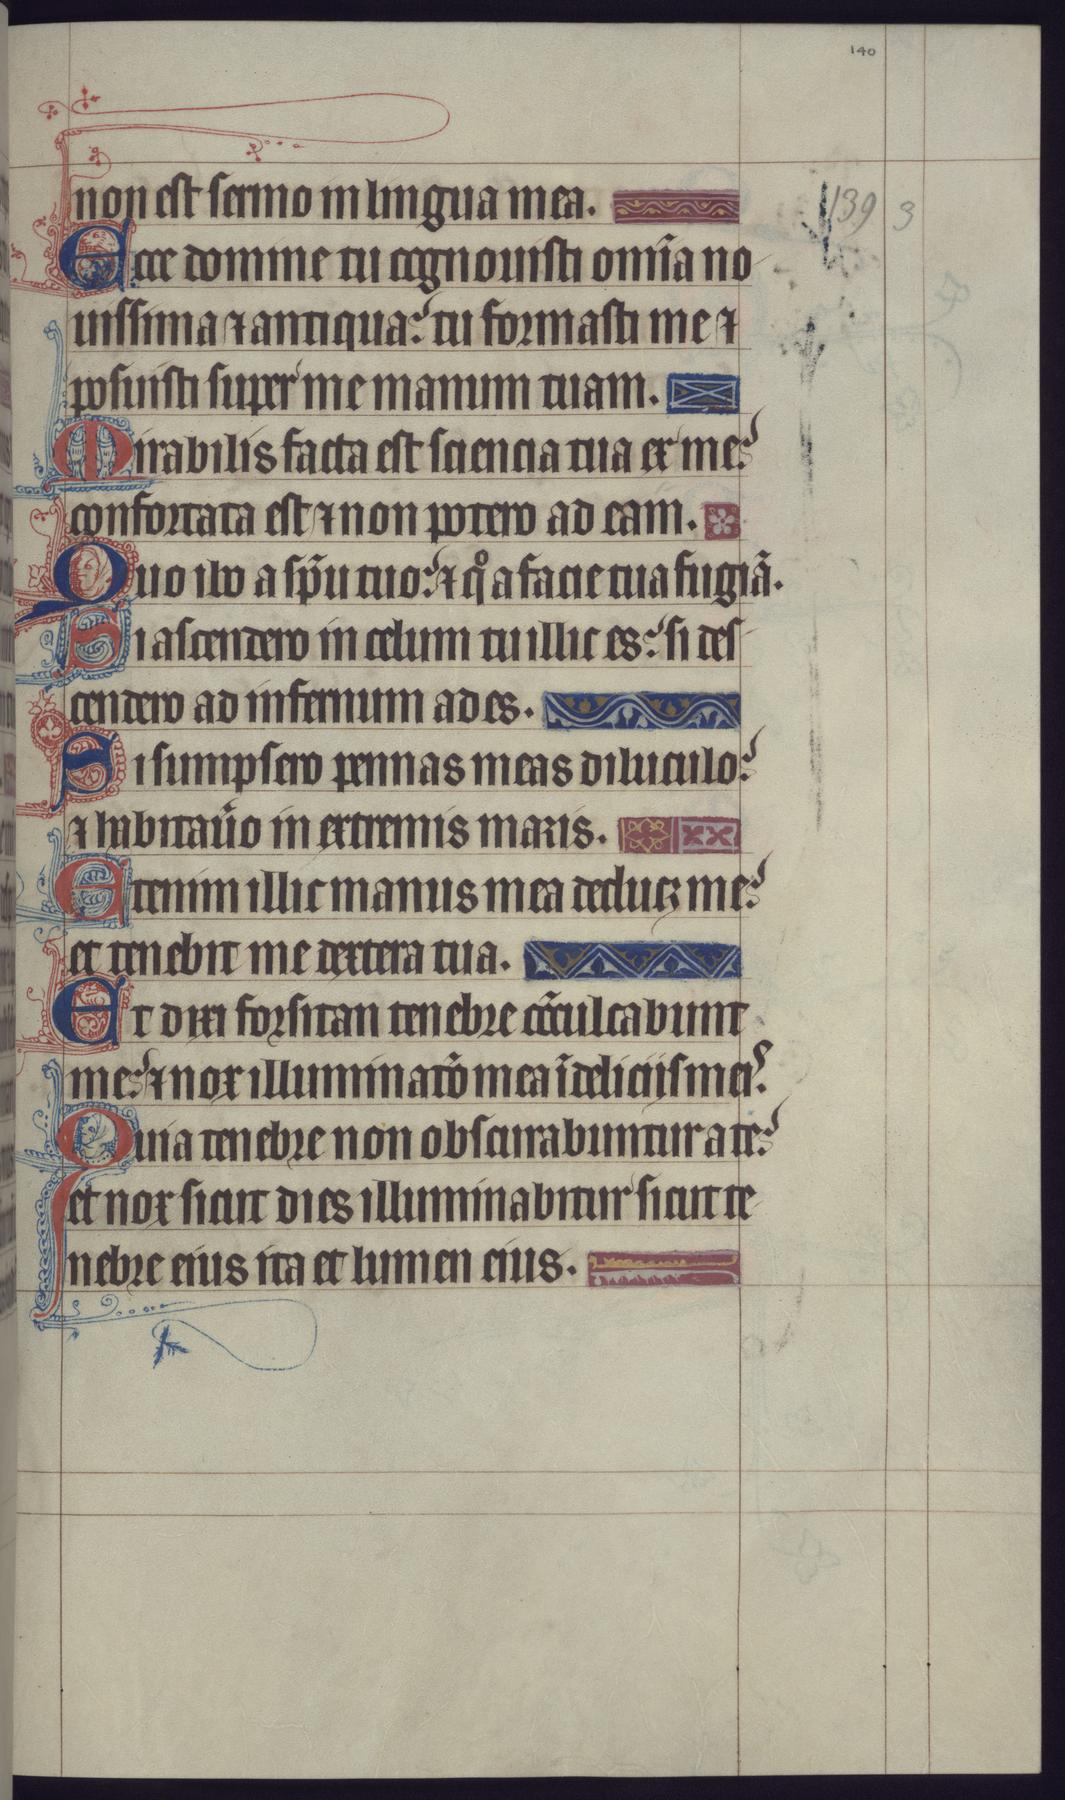 140
139 3
non est sermo in lingua mea.
Ecce domine tu cognouisti om̄ia no
uissima ⁊ antiqua: tu formasti me ⁊
posuisti super me manum tuam.
Mirabilis facta est sciencia tua ex me:
confortata est ⁊ non potero ad eam.
Quo ibo a sp̄u tuo: ⁊ qͦ a facie tua fugiā.
Si ascendero in celum tu illic es: si des
cendero ad infernum ades.
Si sumpsero pennas meas diluculo:
⁊ habitau̾o in extremis maris.
Etenim illic manus mea deducꝫ me:
et tenebit me dextera tua.
Et dixi forsitan tenebre cōculcabunt
me: ⁊ nox illuminatō mea ī delicijs meis.
Quia tenebre non obscurabuntur a te:
et nox sicut dies illuminabitur sicut te
nebre eius ita et lumen eius.